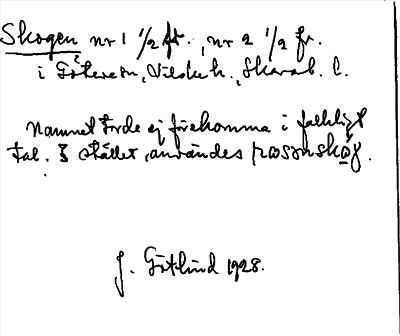 Skogen nr 1 1/2 fr., nr 2 1/2 fr.
i Göteve sn, Vilske h., Skarab. l.
Namnet torde ej förekomma i folkligt
tal. I stället användes
J. Götlind 1928.